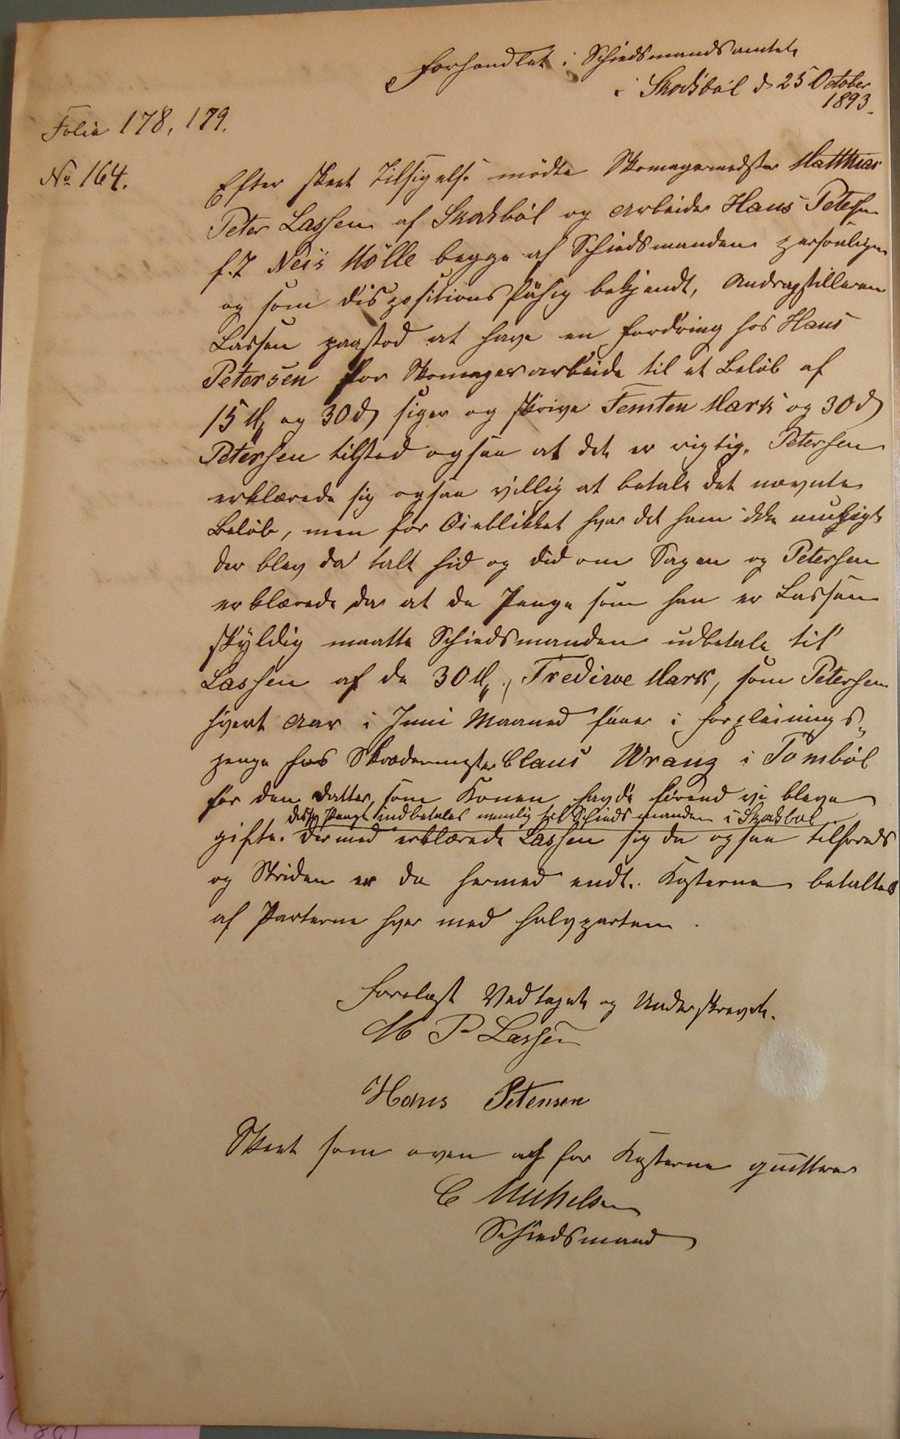 Forhandlet i Schiedsmandsamtet
i Skodsbøl d 25 October
1893.
Folia 178, 179.
No 164.
Efter skeet Tilsigelse mødte Skomagermester Matthias
Peter Lassen af Skodsbøl og Arbeider Hans Petersen
f. Z Neis Mölle begge af Schiedsmanden personligen
og som dispositionsfähig bekjendt, Andragstilleren
Lassen paastod at have en Fordring hos Hans
Petersen for Skomagerarbeide til et Beløb af
15 M og 30 d siger og skrive Femten Mark og 30 d
Petersen tilstod ogsaa at det er rigtig. Petersen
erklærede sig ogsaa villig at betale det nævnte
Beløb, men for Øieblikket hvar det ham ikke muligt
der blev da talt hid og did om Sagen og Petersen
erklærede da at de Penge som han er Lassen
skyldig maatte Schiedsmanden udbetale til
Lassen af de 30 M, Tredive Mark, som Petersen
hvert Aar i Juni Maaned faaer i Forpleinings-
penge hos Skrædermester Claus Wrang i Tombøl
for den Datter, som Konen havde førend vi bleve
disse Penge indbetales nemlig hos Schiedsmanden i Skodsbøl
gifte. Dermed erklærede Lassen sig da ogsaa tilfreds
og Striden er da hermed endt. Kosterne betaltes
af Parterne hver med Halvparten.
Forelæst Vedtaget og Underskrevet.
M P Lassen
Hans Petersen
Skeet som oven og for Kosterne quitteres
C Michelsen
Schiedsmand